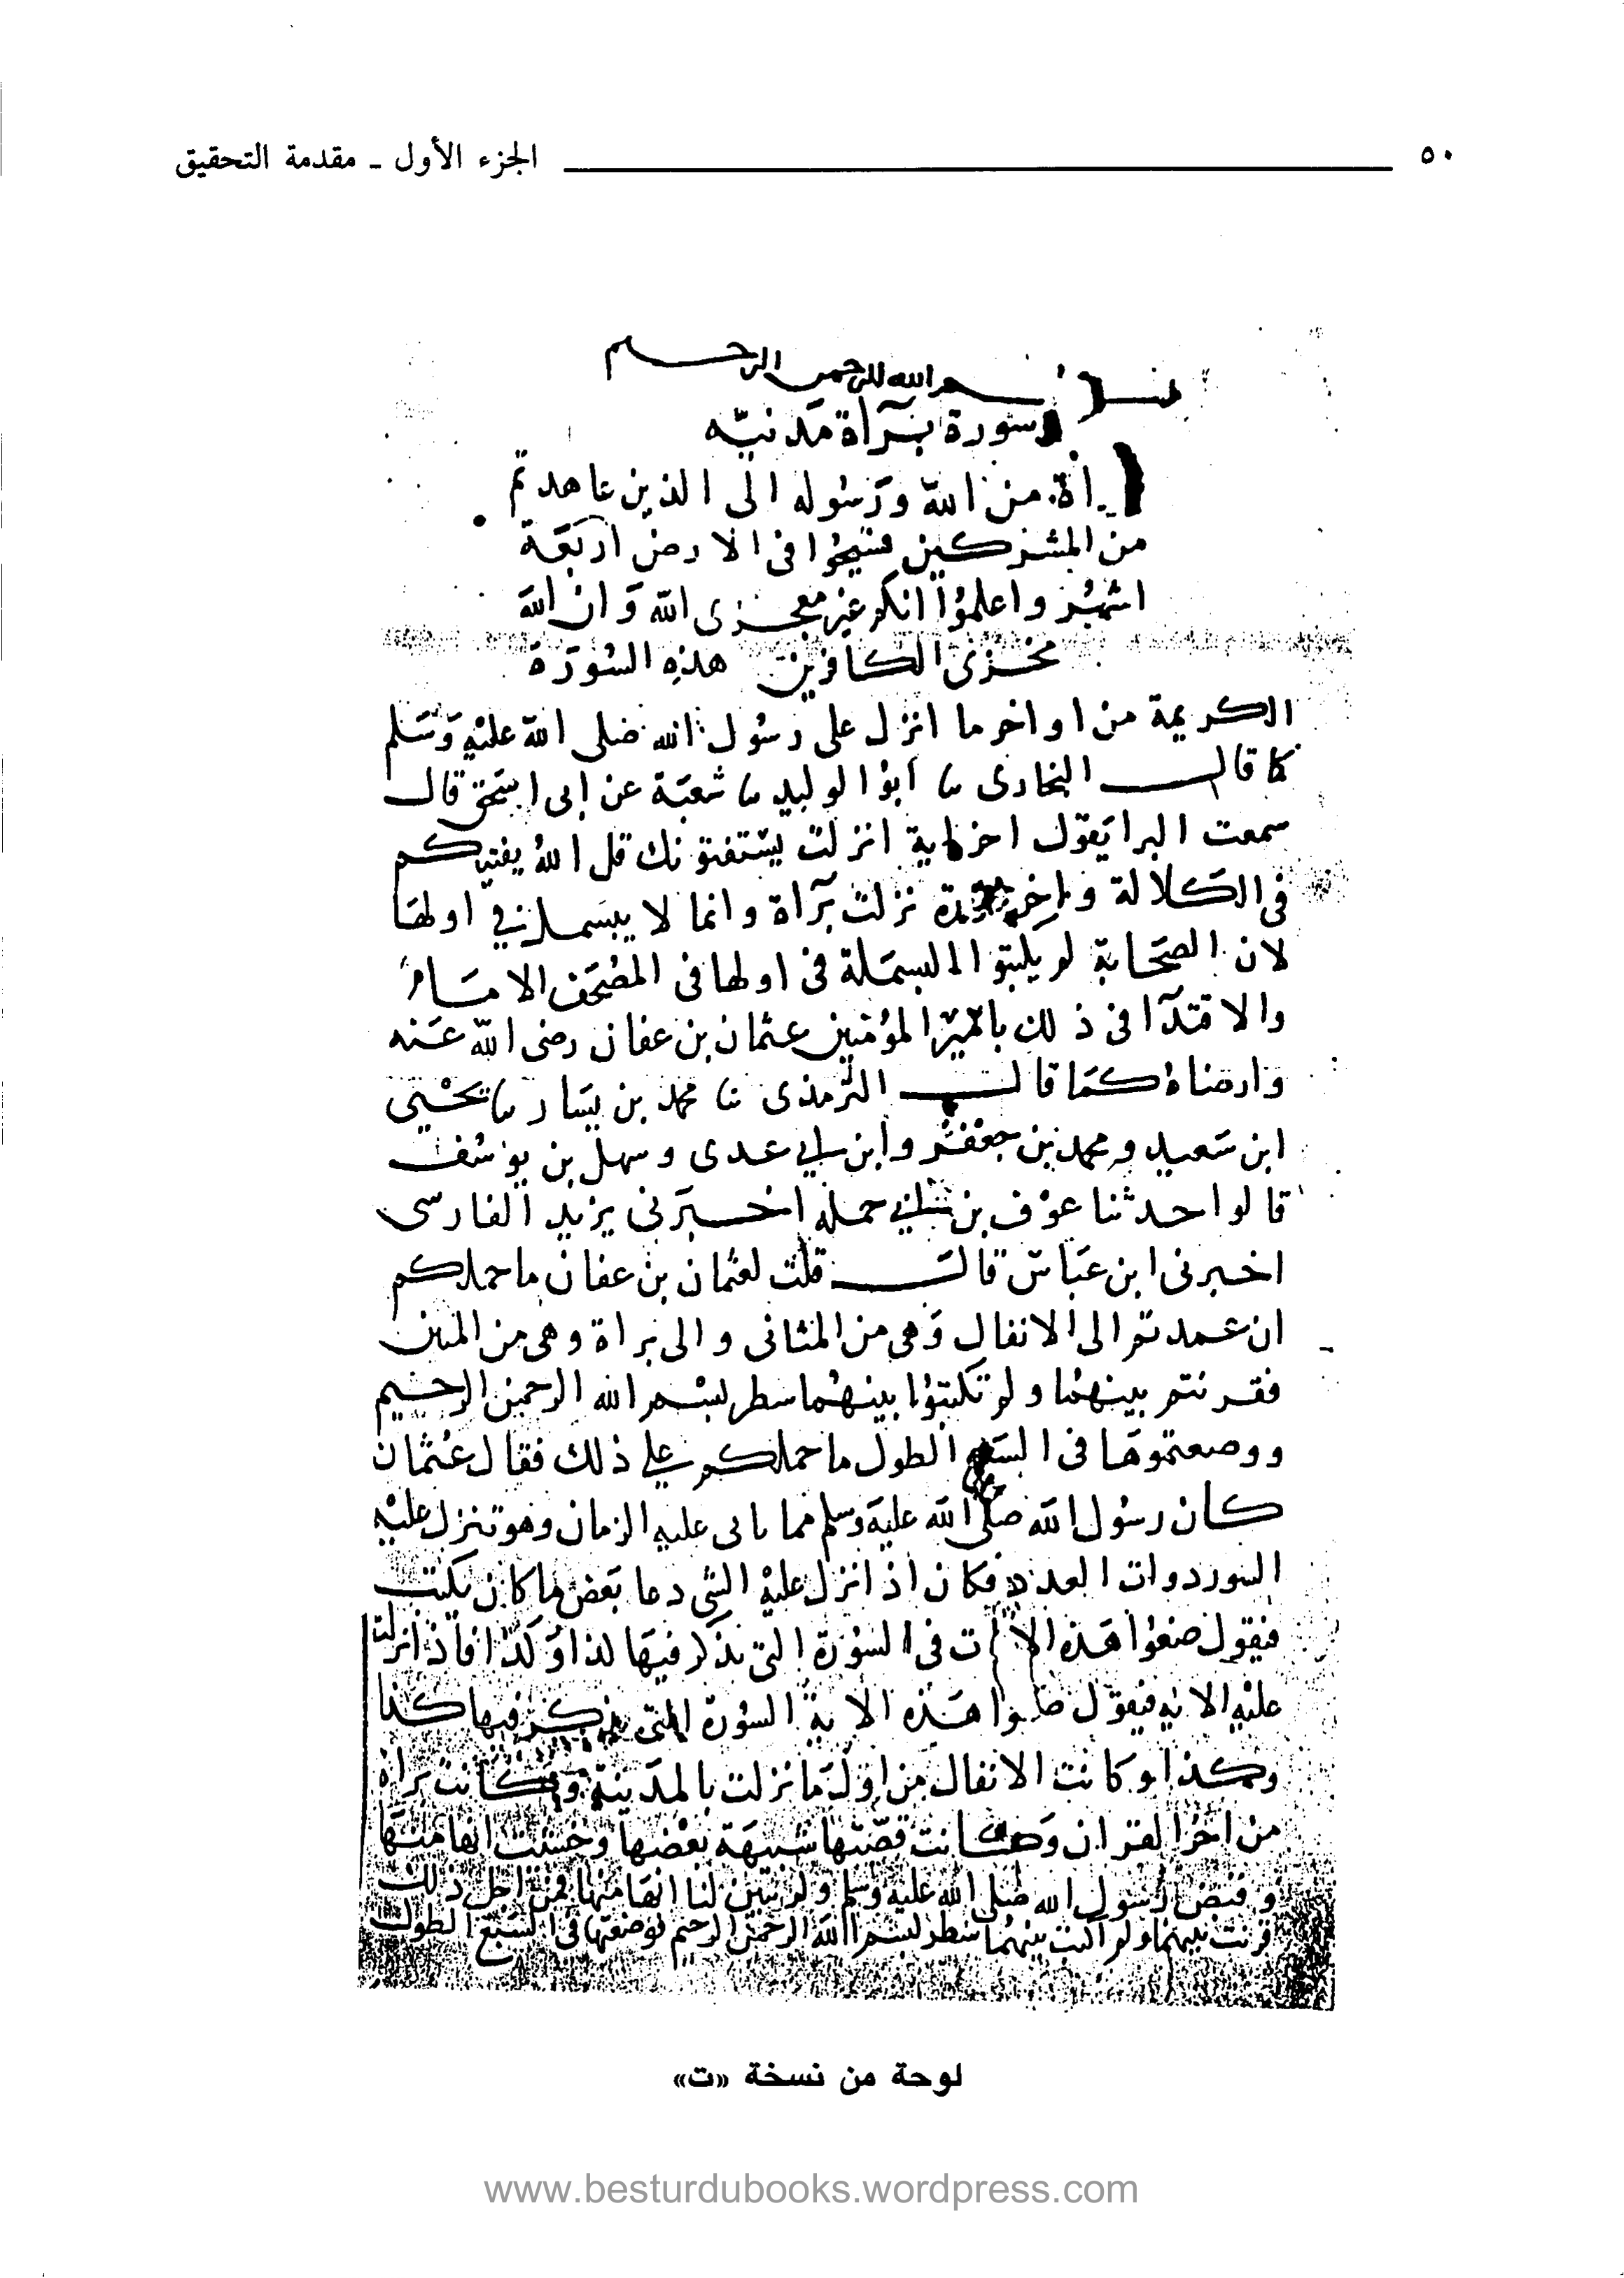 ٥٠ الجزء الأول ـ مقدمة التحقيق
بسم الله الرحمن الرحيم
سورة برآة مدنيه
براة من الله ورسوله الى الذين عاهدتم
من المشركين فسيحوا فى الارض اربعة
اشهر واعلموا انكم غير معجزى الله وان الله
مخزى الكافرين هذه السورة
الكريمة من اواخر ما انزل على رسول الله صلى الله عليه وسلم
كما قال البخارى ثنا ابو الوليد ثنا شعبة عن ابى اسحق قال
سمعت البرا يقول اخر اية انزلت يستفتونك قل الله يفتيكم
فى الكلالة واخر سورة نزلت برآة وانما لا يبسمل فى اولها
لان الصحابة لم يكتبوا البسملة فى اولها فى المصحف الامام
والاقتدآ فى ذلك بامير المؤمنين عثمان بن عفان رضى الله عنه
وارضاه كما قال الترمذى ثنا محمد بن بشار ثنا يحيى
ابن سعيد ومحمد بن جعفر وابن ابي عدى وسهل بن يوسف
قالوا حدثنا عوف بن ابي جمله اخبرنى يزيد الفارسى
اخبرنى ابن عباس قال قلت لعثمان بن عفان ما حملكم
ان عمدتم الى الانفال وهى من المثانى والى براة وهى من المئين
فقرنتم بينهما ولم تكتبوا بينهما سطر بسم الله الرحمن الرحيم
ووضعتموها فى السبع الطول ما حملكم على ذلك فقال عثمان
كان رسول الله صلى الله عليه وسلم مما ياتى عليه الزمان وهو تنزل عليه
السور ذوات العدد فكان اذا نزل عليه الشى دعا بعض ما كان يكتب
فيقول ضعوا هذه الايات فى السورة التى يذكر فيها كذا وكذا فاذا نزلت
عليه الايه فيقول ضعوا هذه الاية السورة التى يذكر فيها كذا
وكذا وكانت الانفال من اول ما نزلت بالمدينة وكانت براة
من اخر القران وكانت قصتها شبيهة بعضها وحسبت انها منها
وقبض رسول الله صلى الله عليه وسلم ولم يتبين لنا انها منها فمن اجل ذلك
قرنت بينهما ولم اكتب بينهما سطر بسم الله الرحمن الرحيم فوضعتها فى السبع الطول
لوحة من نسخة «ت»
www.besturdubooks.wordpress.com